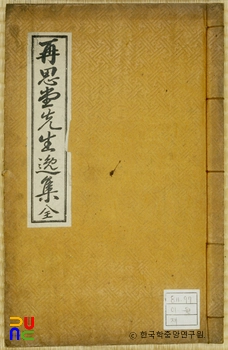 再思堂先生逸集 全
ⓒ 한국학중앙연구원